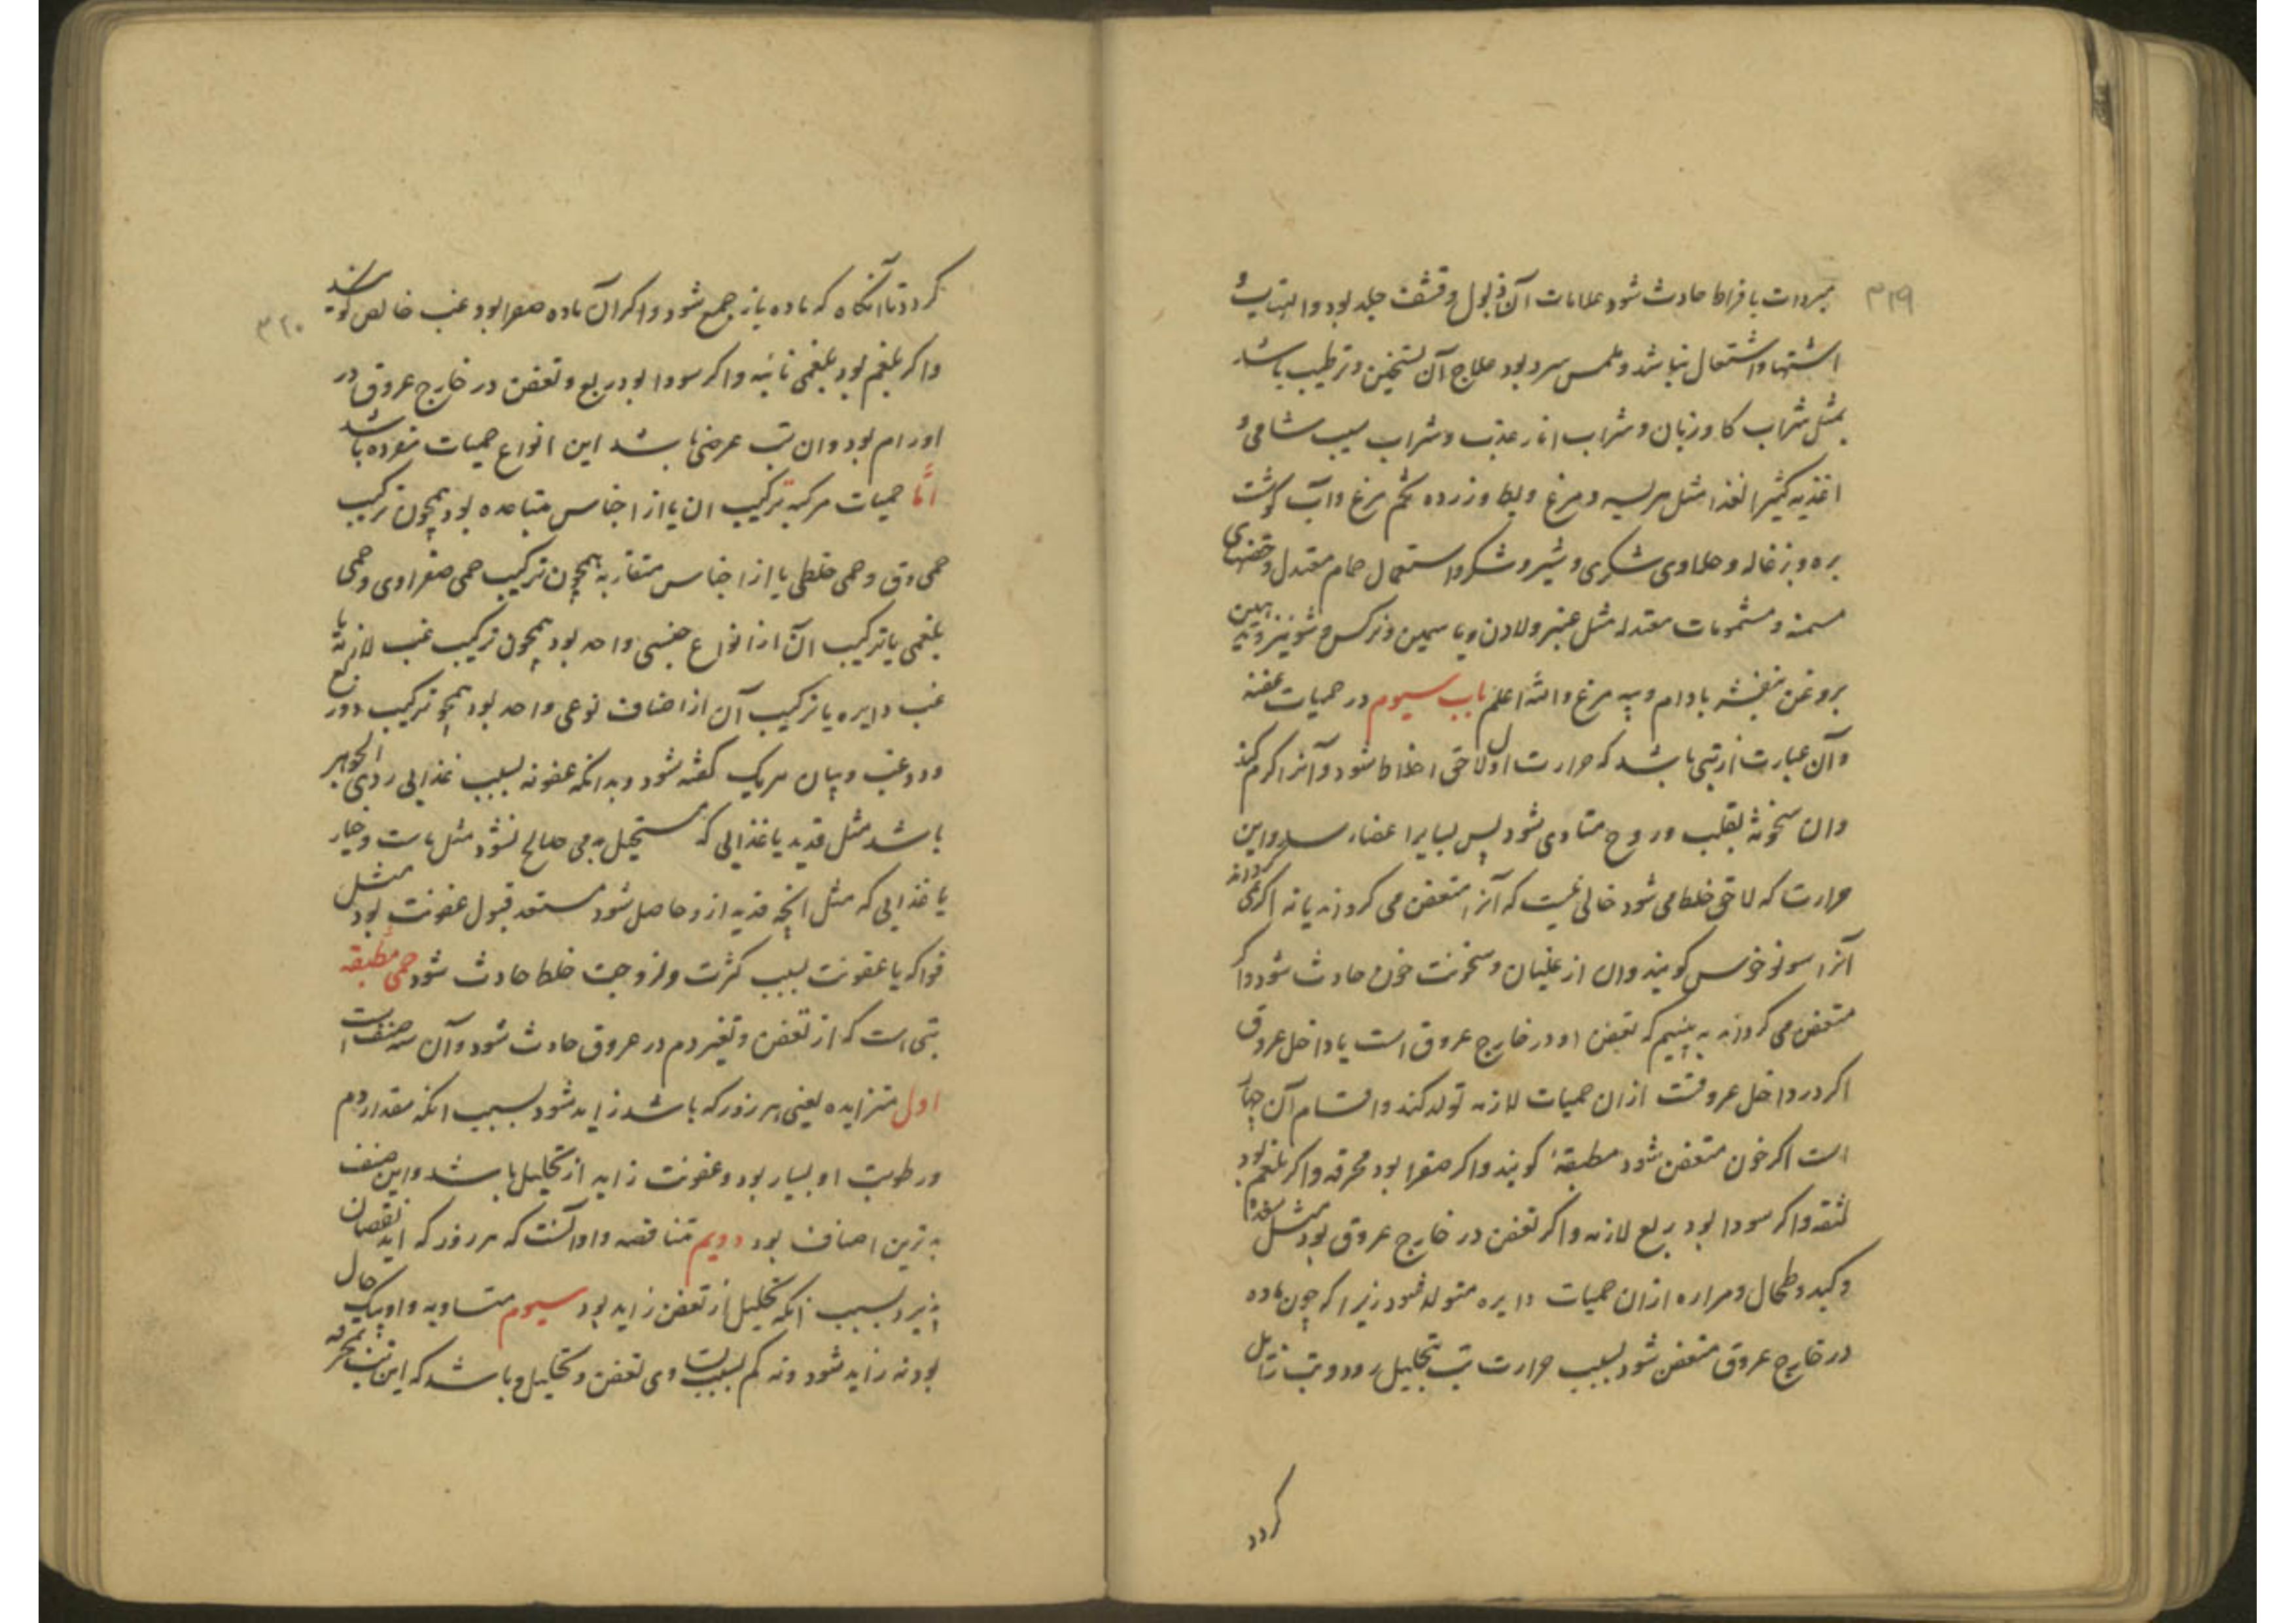 ۳۱۹
مبردات بافراط حادث شود علامات آن ذبول و قشف جلد بود و التهاب و
اشتها و اشتعال نباشد و ملمس سرد بود علاج آن تسخین و ترطیب باشد
بمثل شراب کاوزبان و شراب انار عذب و شراب سیب شامی و
اغذیه کثیر الغذا مثل هریسه و مرغ و بط و زرده تخم مرغ و آب کوشت
بره و بزغاله و حلاوی شکری و شیر و شکر و استعمال حمام معتدل و حقنهای
مسمنه و مشمومات معتدله مثل عنبر و لادن و یاسمین و نرکس و شونیز و تدهین
بروغن بنفشه بادام و پیه مرغ و الله اعلم باب سیوم در حمیات عفنه
و آن عبارت از تبی باشد که حرارت اولا لاحق اخلاط شود و آنرا کرم کند
و ان سخونة بقلب و روح متادی شود پس بسایر اعضاء رسد و این
حرارت که لاحق خلط می شود خالی نیست که آنرا متعفن می کرداند یا نه اکر نمی کرداند
آنرا سونوخوس کویند و ان از غلیان و سخونت خون حادث شود و اکر
متعفن می کرداند به بینیم که تعفن او در خارج عروق است یا داخل عروق
اکر در داخل عروقست ازان حمیات لازمه تولد کند و اقسام آن چهار
است اکر خون متعفن شود مطبقه کویند و اکر صفرا بود محرقه و اکر بلغم بود
لثقه و اکر سودا بود ربع لازمه و اکر تعفن در خارج عروق بود مثل معده
و کبد و طحال و مراره ازان حمیات دایره متولد شود زیرا که چون ماده
در خارج عروق متعفن شود بسبب حرارت تب بتحلیل رود و تب زایل
کردد
۳۲۰
کردد تا آنکاه که ماده باز جمع شود و اکر آن ماده صفرا بود غب خالص کویند
و اکر بلغم بود بلغمی نائبه و اکر سودا بود ربع و تعفن در خارج عروق در
اورام بود و ان تب عرضی باشد این انواع حمیات مفرده باشد
امّا حمیات مرکبه ترکیب ان یا از اجناس متباعده بود همچون ترکیب
حمی دق و حمی خلطی یا از اجناس متقاربه همچون ترکیب حمی صفراوی و حمی
بلغمی یا ترکیب آن از انواع جنسی واحد بود همچون ترکیب غب لازمه با
غب دایره یا ترکیب آن از اصناف نوعی واحد بود همچو ترکیب دو ربع
و دو غب و بیان هر یک کفته شود و بدانکه عفونه بسبب غذایی ردی الجوهر
باشد مثل قدید یا غذایی که مستحیل بدمی صالح نشود مثل ماست و خیار
یا غذایی که مثل انچه قدیه ازو حاصل شود مستعد قبول عفونت بود مثل
فواکه یا عفونت بسبب کثرت و لزوجت خلط حادث شود حمی مطبقه
تبی است که از تعفن و تغیر دم در عروق حادث شود و آن سه صنف است
اول متزایده یعنی هر روز که باشد زاید شود بسبب انکه مقدار دم
و رطوبت او بسیار بود و عفونت زاید از تحلیل باشد و این صنف
بدترین اصناف بود دویم متناقصه و او آنست که هر روز که اید نقصان
پذیرد بسبب انکه تحلیل از تعفن زاید بود سیوم متساویه و او بیک حال
بود نه زاید شود و نه کم بسبب تساوی تعفن و تحلیل و باشد که این تب بمحرقه